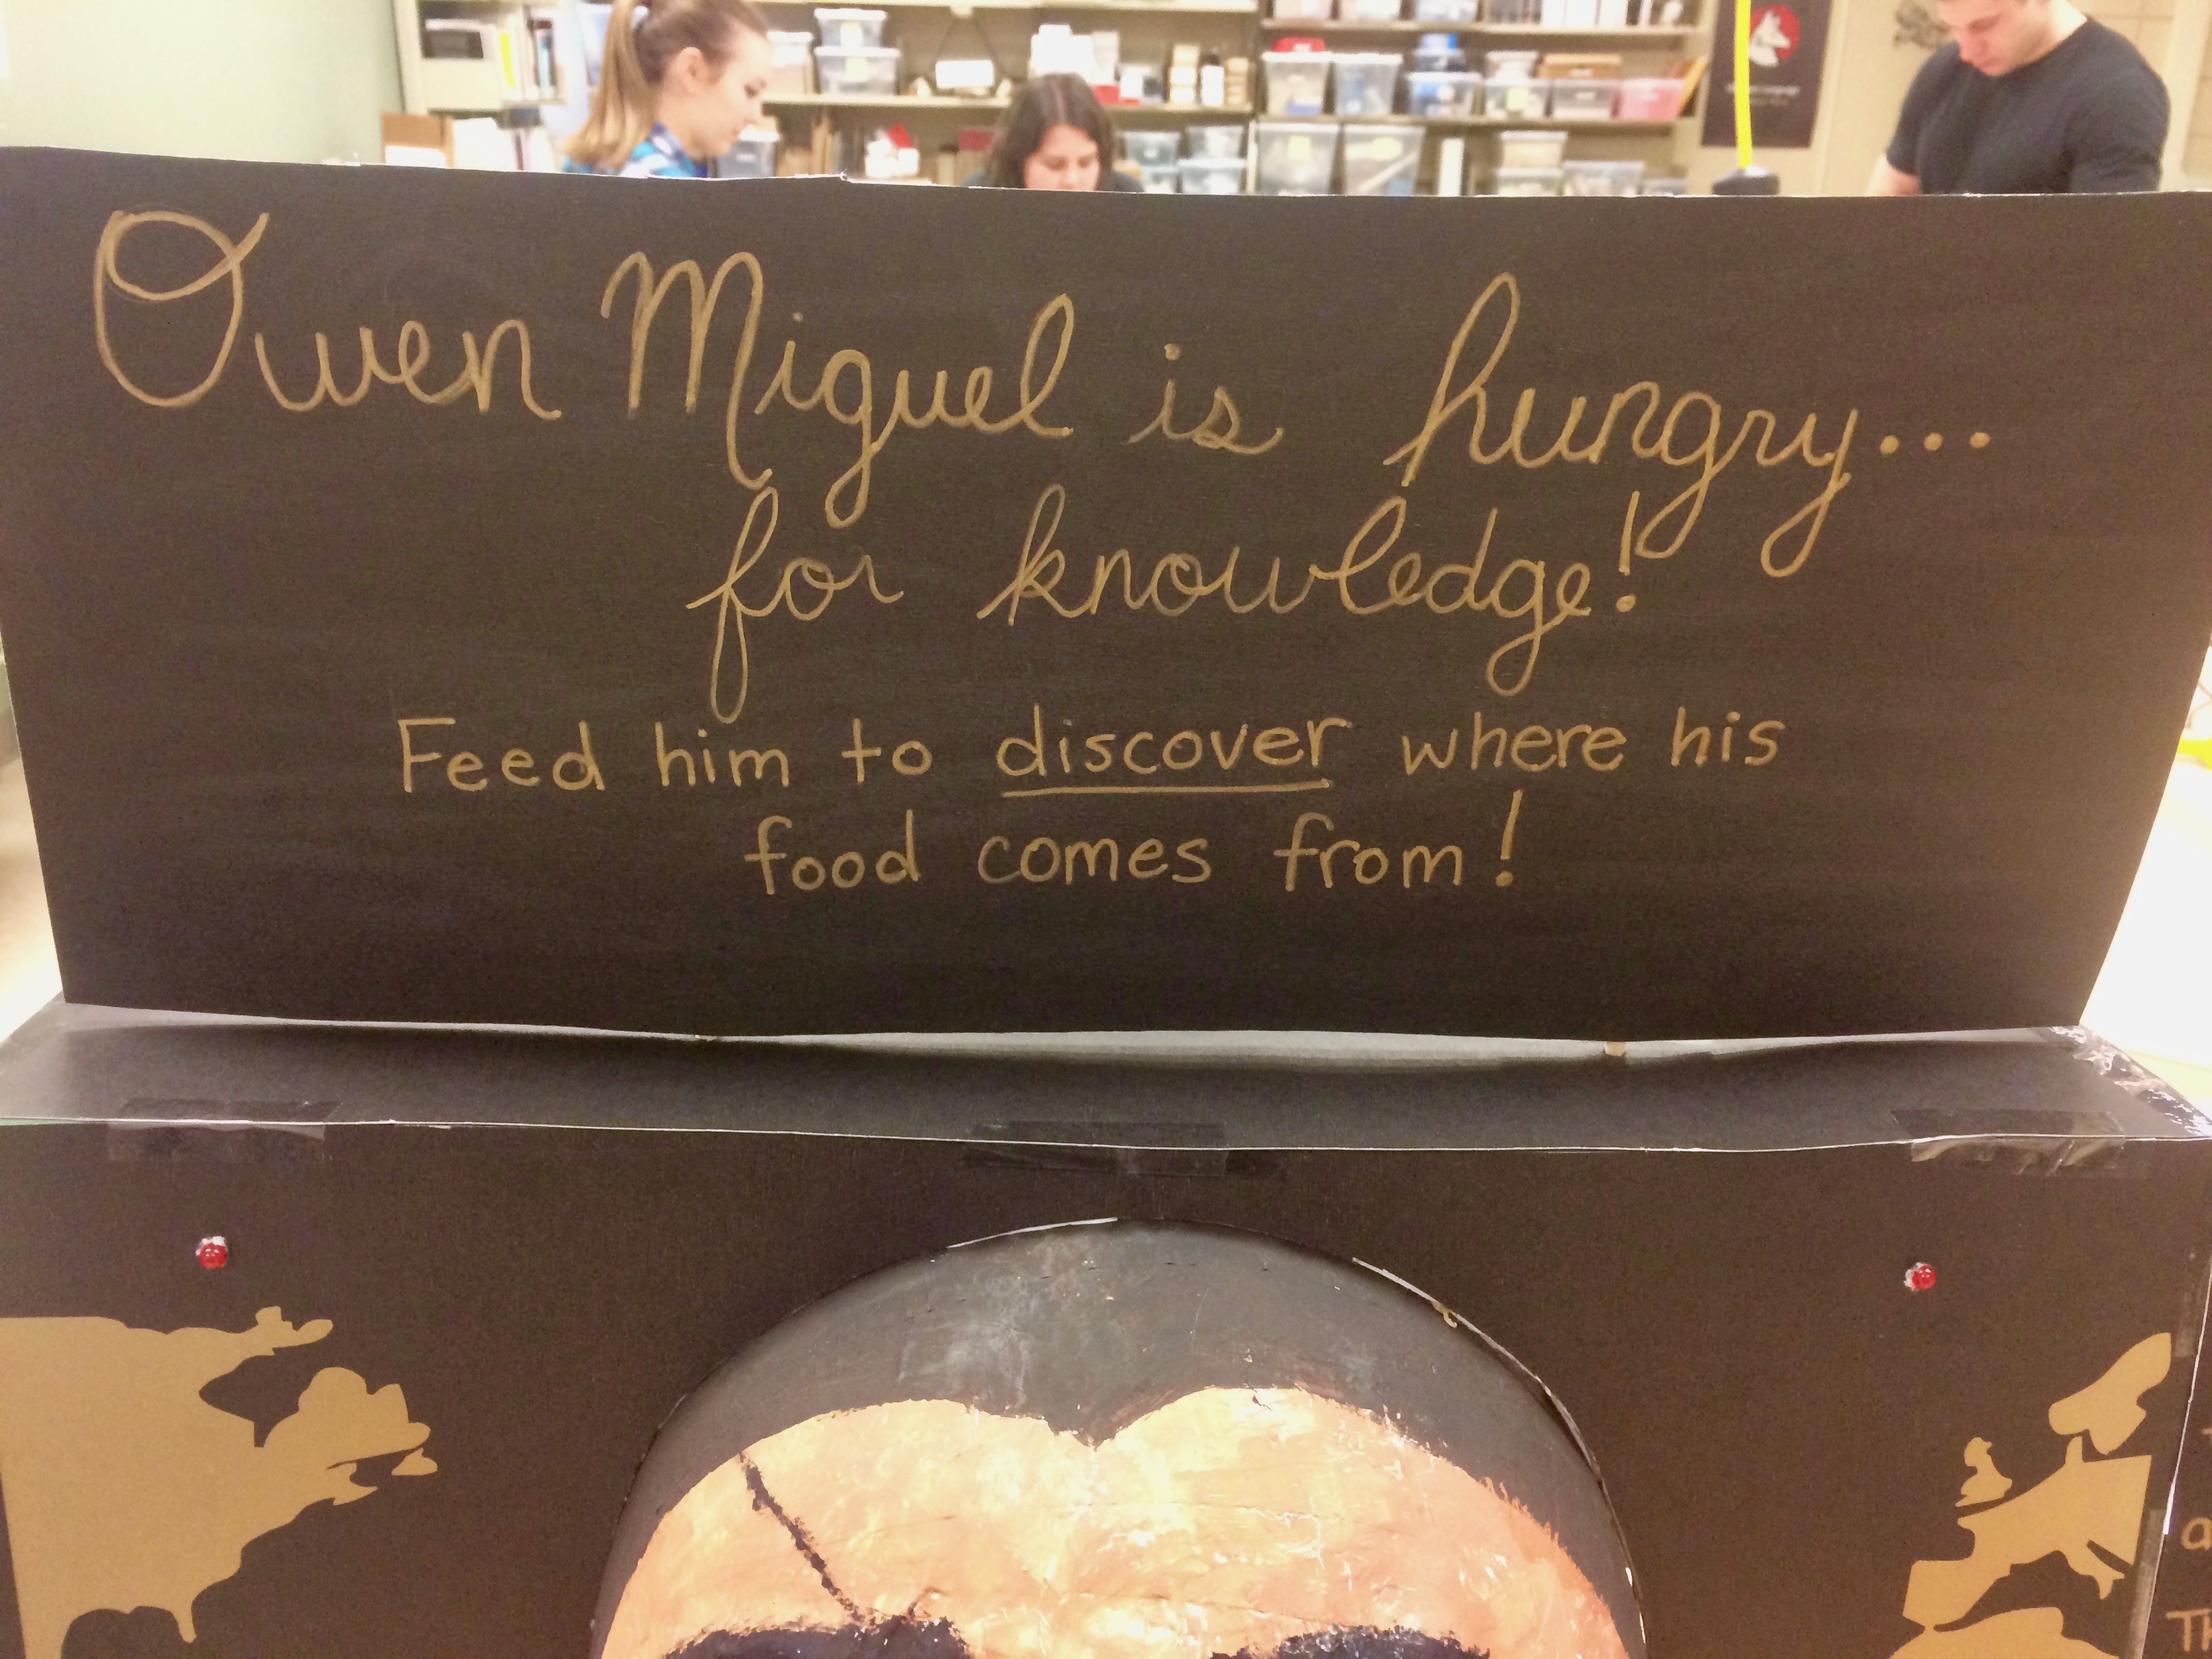 Owen Miguel is hungry...
for knowledge!
Feed him to discover where his
food comes from!